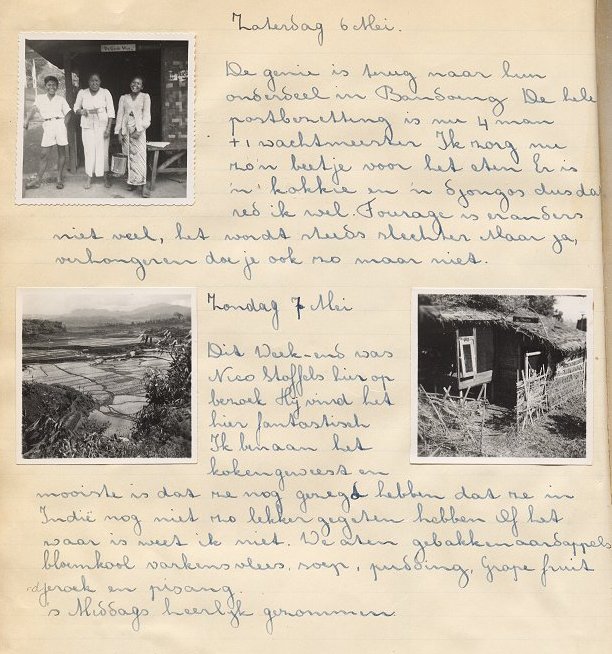 Zaterdag 6 Mei.
De genie is terug naar hun
onderdeel in Bandoeng De hele
postbezetting is nu 4 man
+ 1 wachtmeester Ik zorg nu
zo'n beetje voor het eten Er is
'n kokkie en 'n djongos dus da
red ik wel. Fourage is er anders
niet veel, het wordt steeds slechter Maar ja,
verhongeren doe je ook zo maar niet.
Zondag 7 Mei
Dit Week-end was
Nico Stoffels hier op
bezoek Hij vind het
hier fantastisch
Ik ben aan het
koken geweest en
mooiste is dat ze nog gezegd hebben dat ze in
Indië nog niet zo lekker gegeten hebben Of het
waar is weet ik niet. We aten gebakken aardappels
bloemkool varkensvlees, soep, pudding, Grape fruit
djeroek en pisang.
's Middags heerlijk gezwommen